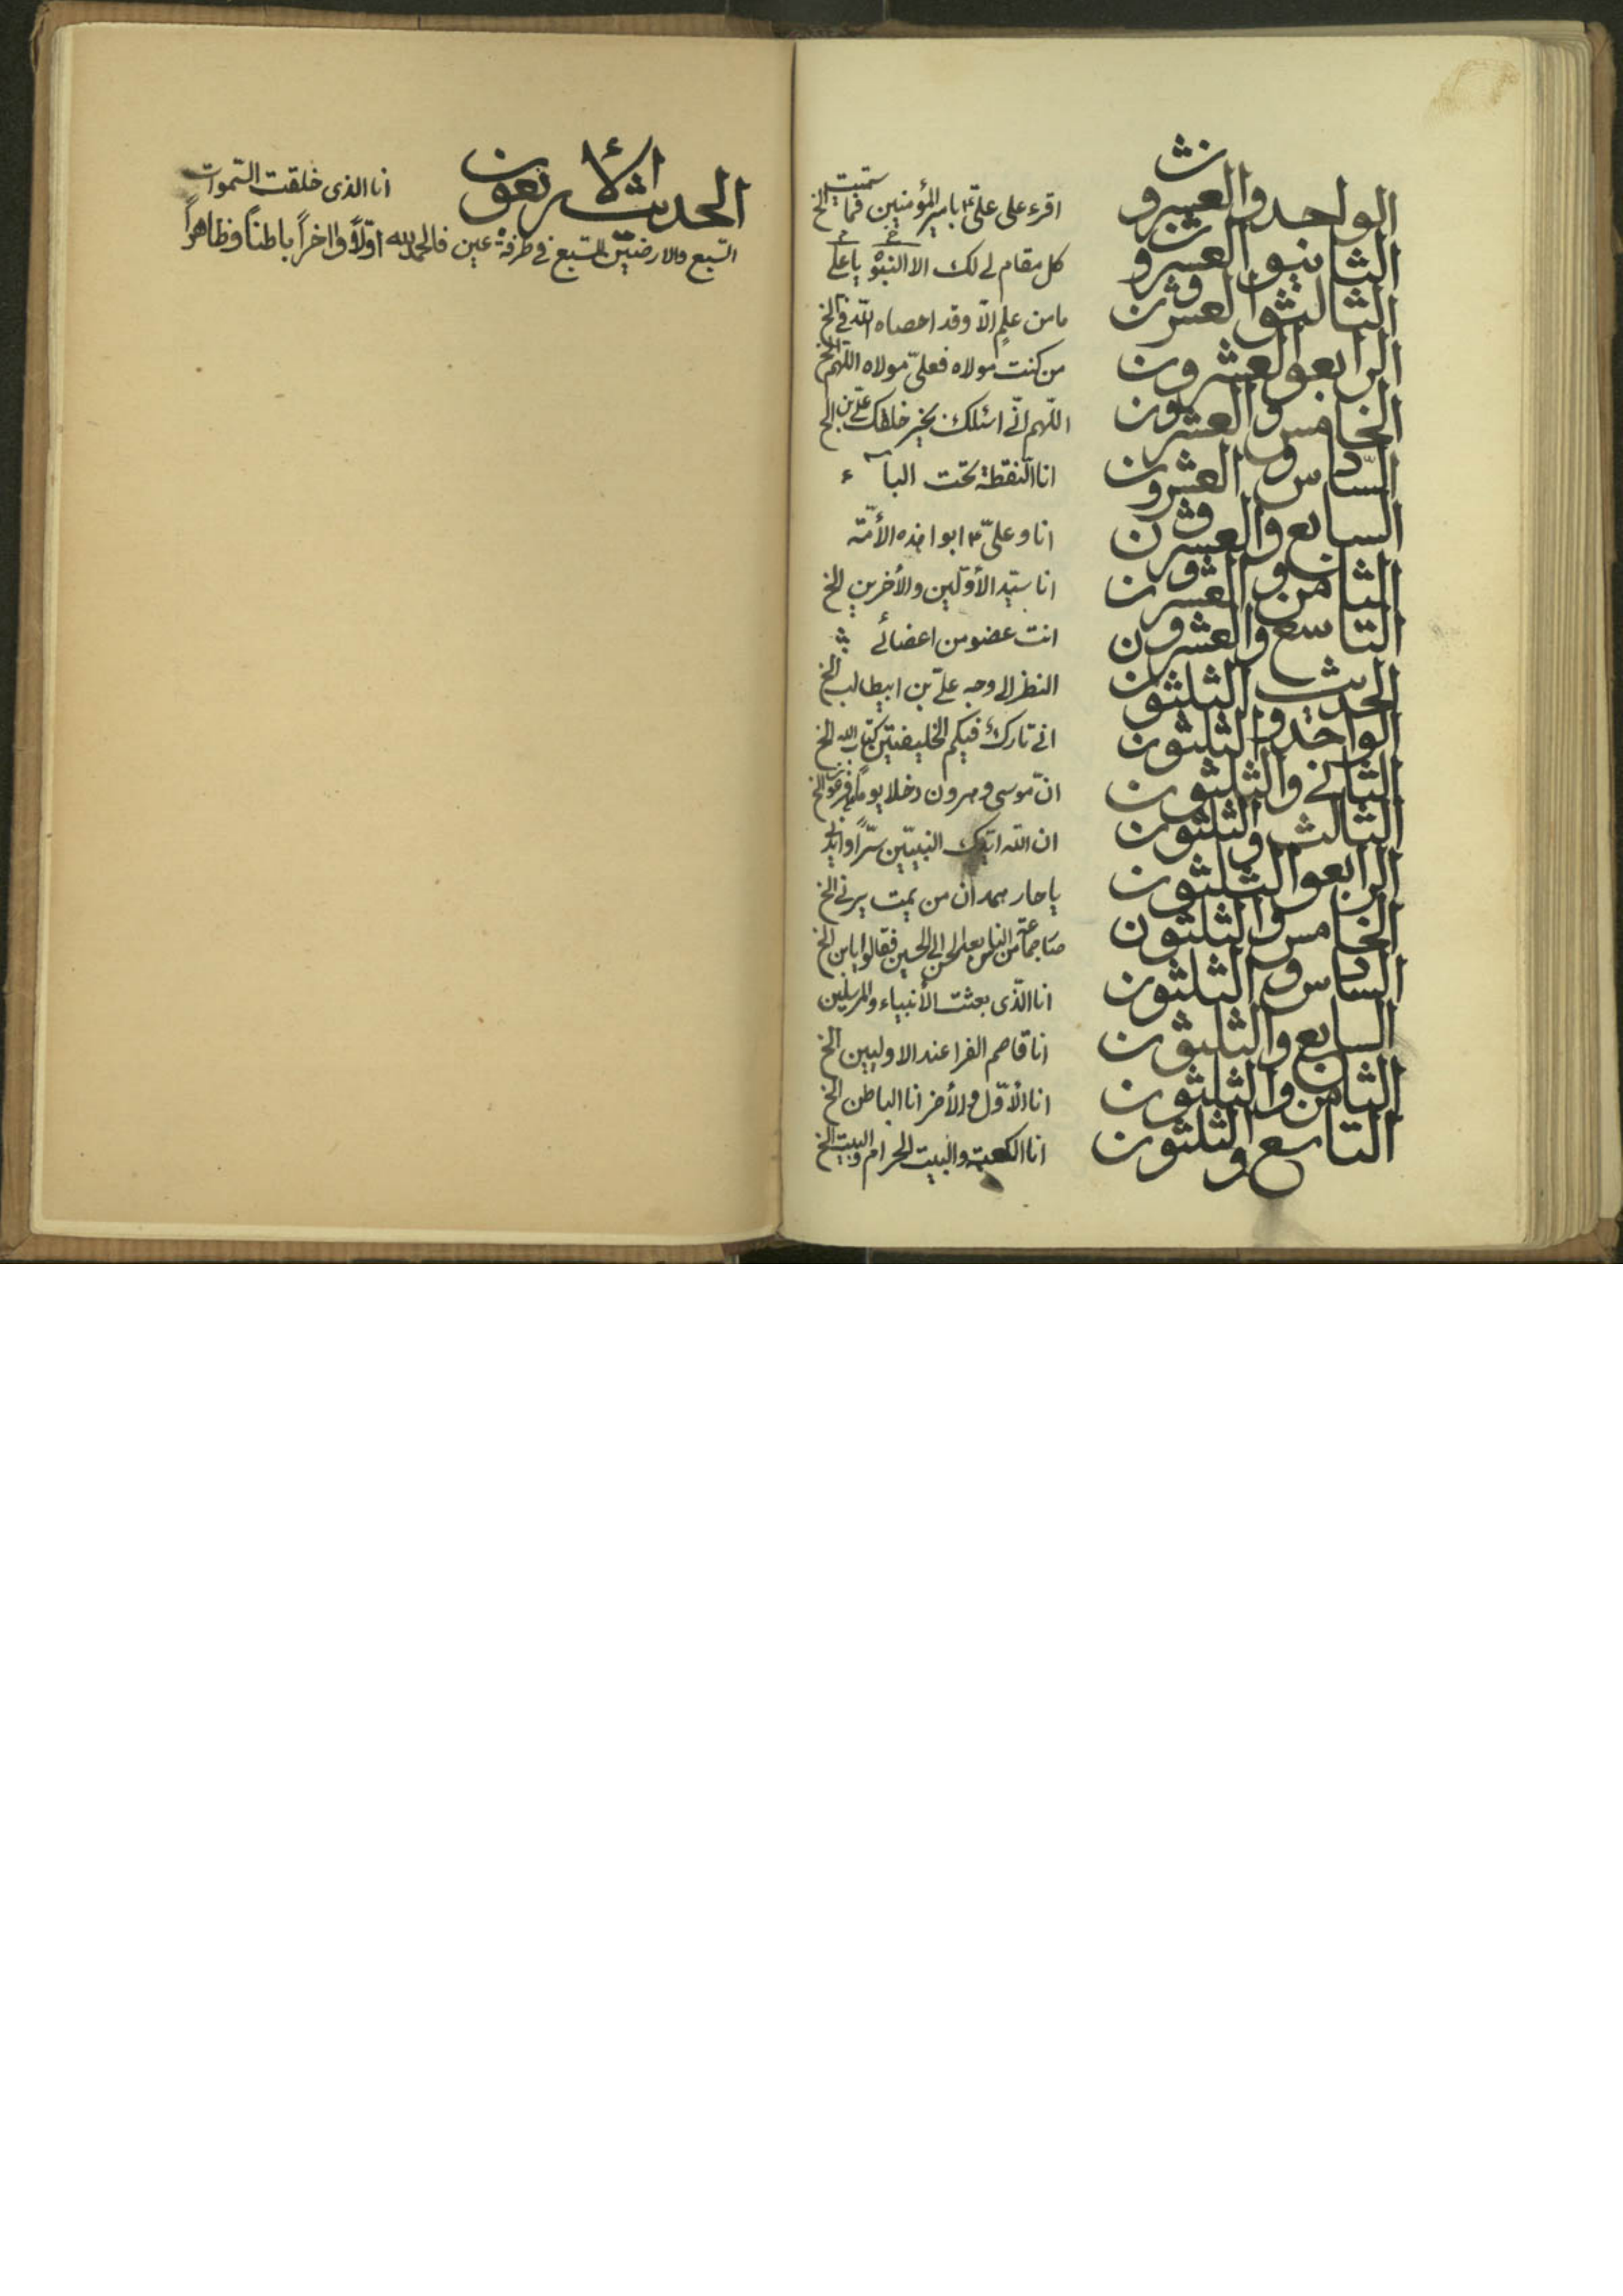 الواحد والعشرون اقرء على علىّ ؑ بامير المؤمنين فما سمّيت الخ
الثانی والعشرون كل مقام لی لك الا النبوّة يا علی
الثالث والعشرون ما من علمٍ الّا وقد احصاه اللّه فیّ الخ
الرابع والعشرون من كنت مولاه فعلىّ مولاه اللّهم الخ
الخامس والعشرون اللّهم انّی اسئلك بخير خلقك علیّ بن الخ
السّادس والعشرون انا النّقطة تحت الباء
السابع والعشرون انا و علىّ ؑ ابوا هذه الأمّة
الثامن والعشرون انا سيّد الأوّلين والأخرين الخ
التاسع والعشرون انت عضو من اعضائی
الحديث الثلثون النظر الى وجه علیّ بن ابيطالب الخ
الواحد والثلثون انی تارك فيكم الخليفتين كتاب الله الخ
الثانی والثلثون انّ موسى و هرون دخلا يوماً علی فرعون الخ
الثالث والثلثون ان اللّه ايّدك النبيّين سرّاً و
الرابع والثلثون يا حار همدان من يمت يرنی الخ
الخامس والثلثون جماعة من الناس بعد الحسن الى الحسين فقالوا يابن الخ
السادس والثلثون انا الّذى بعثت الأنبياء والمرسلين
السابع والثلثون انا قاصم الفراعنه الاوليين الخ
الثامن والثلثون انا الأوّل والأخر انا الباطن الخ
التاسع والثلثون انا الكعبة والبيت الحرام والبيت الخ
الحديث الأربعون انا الذى خلقت السّموات
السّبع والارضيّن السّبع فی طرفة عين فالحمدلله اوّلاً واخراً باطناً وظاهراً